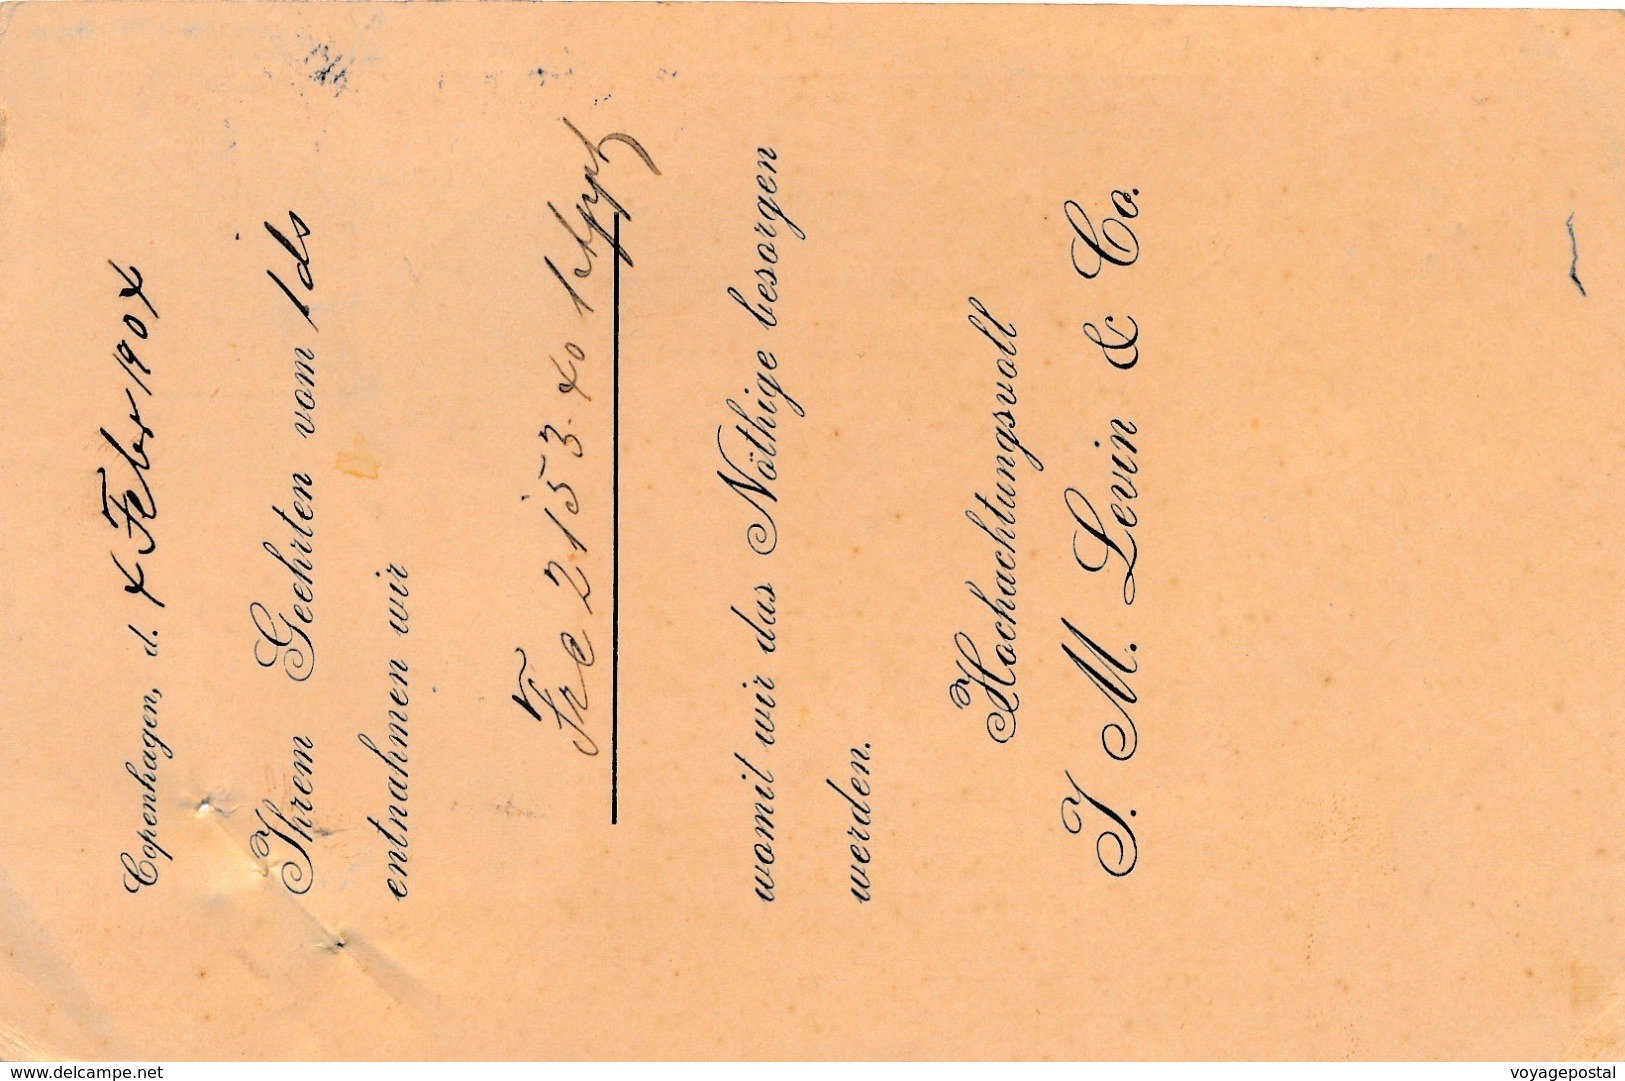 Copenhagen, d. 4 Febr 1904
Ihrem Geehrten vom 1 ds
entnahmen wir
Frc 2153.40
womit wir das Nöthige besorgen
werden.
Hochachtungsvoll
J. M. Levin & Co.
www.delcampe.net
voyagepostal